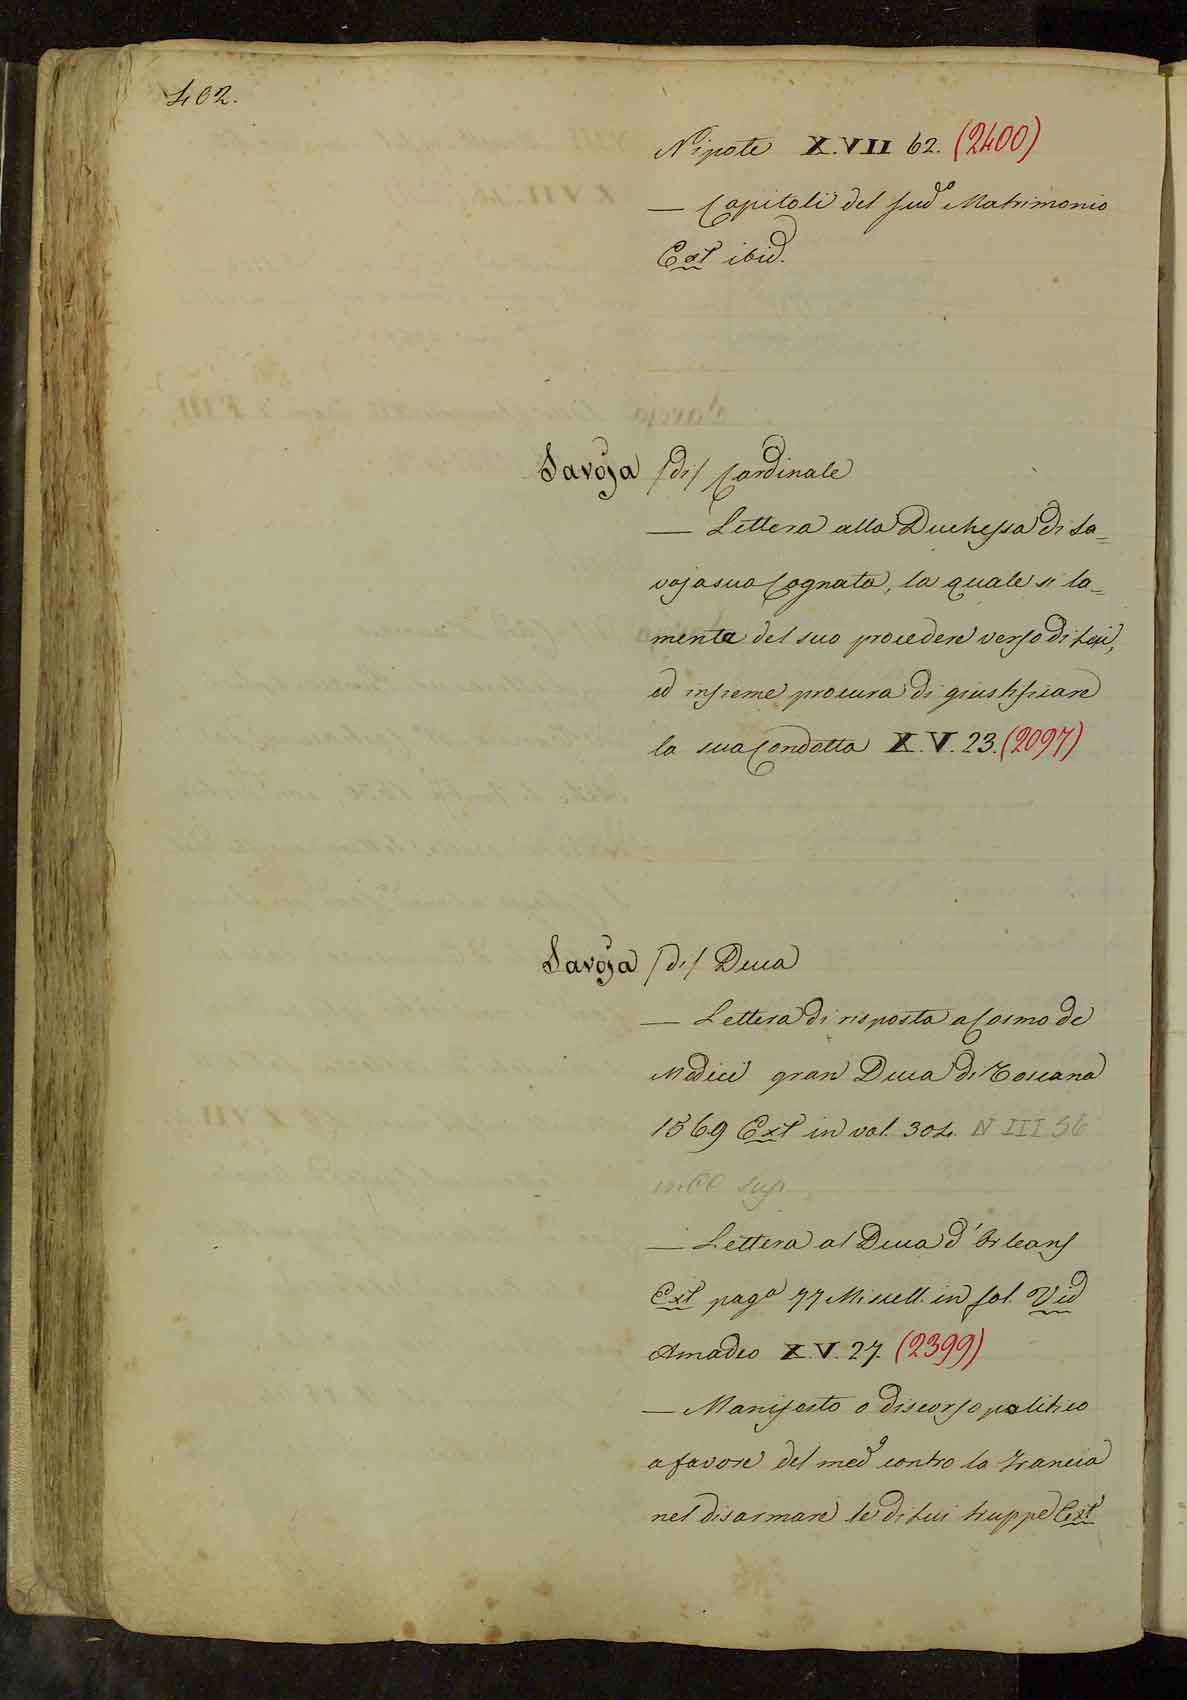 402.
Nipote X.VII 62. (2400)
— Capitoli del sud.º Matrimonio
Ext ibid.
Savoja /di/ Cardinale
— Lettera alla Duchessa di Sa=
voja sua Cognata, la quale si la=
menta del suo procedere verso di Lei,
ed insieme procura di giustificare
la sua Condotta X.V. 23. (2097)
Savoja /di/ Duca
— Lettera di risposta a Cosmo de
Medici gran Duca di Toscana
1569 Ext in vol. 304. N III 56
in CC sup
— Lettera al Duca d'Orleans
Ext pagª 77 Miscell. in fol. Vid
Amadeo X.V. 27. (2399)
— Manifesto o discorso politico
a favore del medº contro la Francia
nel disarmare le di Lui truppe Ext